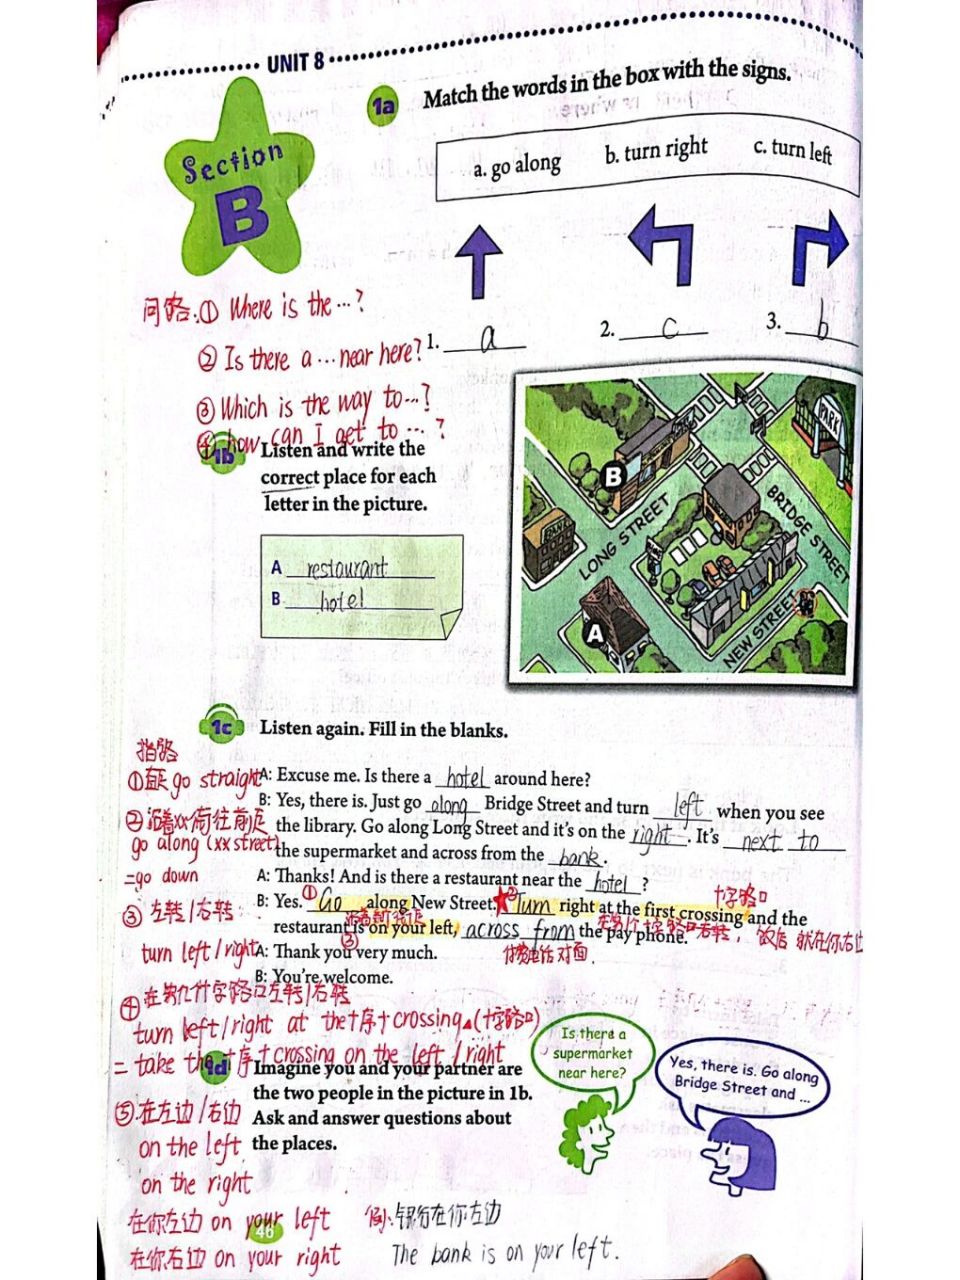 UNIT 8
Section
B
1a Match the words in the box with the signs.
a. go along b. turn right c. turn left
1. a 2. c 3. b
问路.① Where is the …?
② Is there a … near here?
③ Which is the way to…?
④ how can I get to … ?
1b Listen and write the
correct place for each
letter in the picture.
A restaurant
B hotel
PARK
B
LONG STREET
BRIDGE STREET
A
NEW STREET
1c Listen again. Fill in the blanks.
指路
A: Excuse me. Is there a hotel around here?
① go straight
B: Yes, there is. Just go along Bridge Street and turn left when you see
② 沿着xx街往前走
the library. Go along Long Street and it's on the right. It's next to
go along (xx street)
the supermarket and across from the bank.
=go down
A: Thanks! And is there a restaurant near the hotel?
十字路口
③ 左转/右转
B: Yes. ① Go along New Street. ② Turn right at the first crossing and the
restaurant is on your left, across from the pay phone.
③
付费电话对面.
turn left/right
A: Thank you very much.
B: You're welcome.
④ 在第几个十字路口左转/右转
turn left/right at the+序+crossing (十字路口)
= take the+序+crossing on the left/right
1d Imagine you and your partner are
the two people in the picture in 1b.
Ask and answer questions about
the places.
Is there a
supermarket
near here?
Yes, there is. Go along
Bridge Street and ...
⑤.在左边/右边
on the left
on the right
在你左边 on your left
例:银行在你左边
46
在你右边 on your right
The bank is on your left.